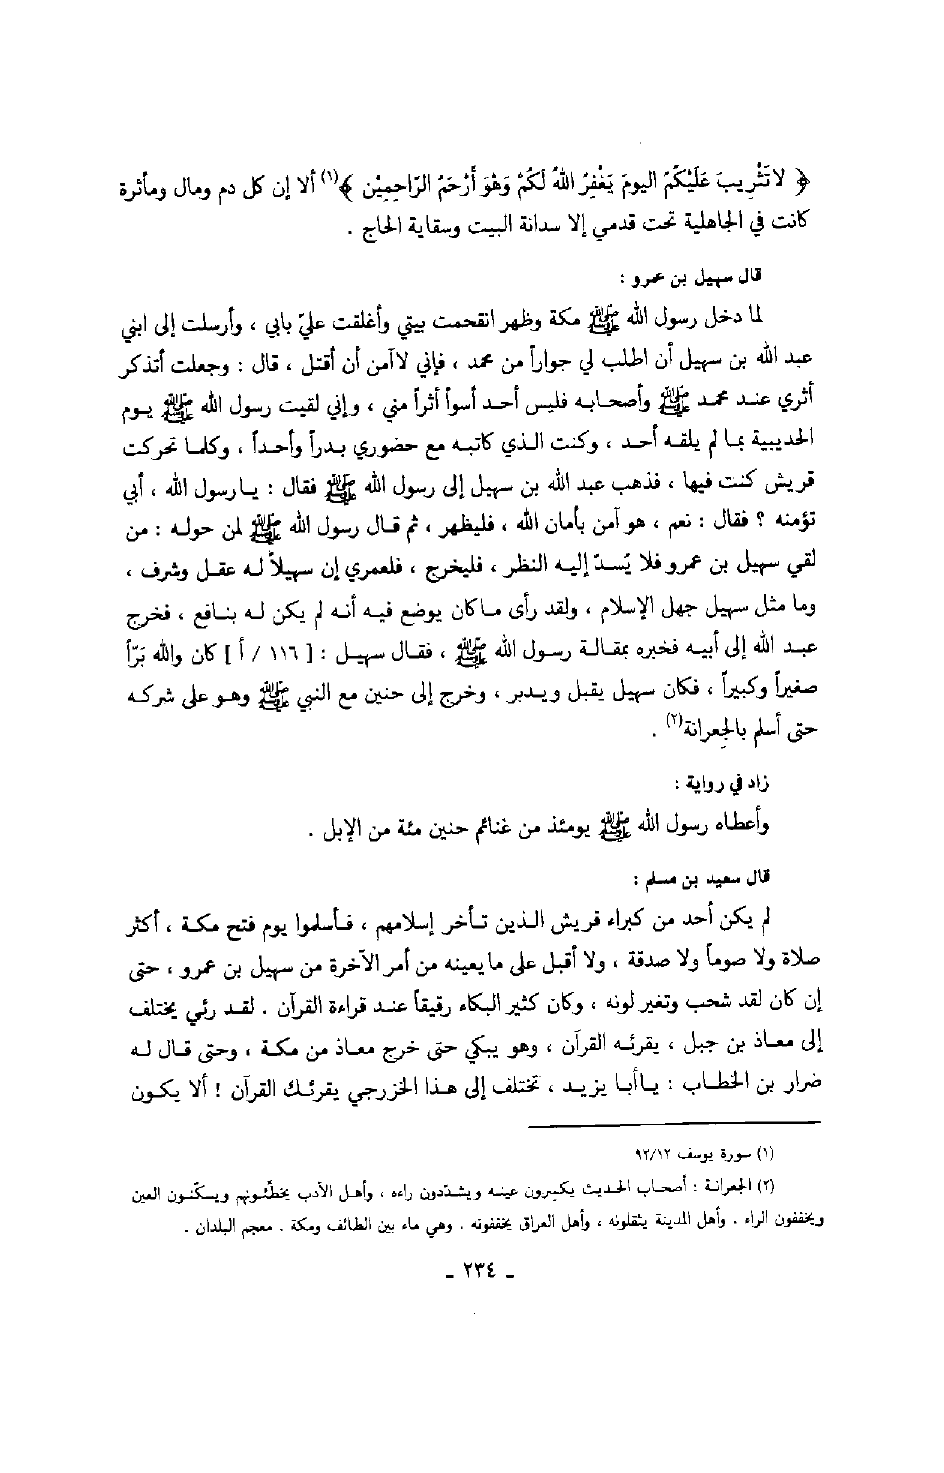 ﴿ لاتَثْرِيبَ عَلَيْكُمُ اليومَ يَغْفِرُ اللهُ لَكُمْ وَهْوَ أَرْحَمُ الرّاحِمِيْن ﴾(١) ألا إن كل دم ومال ومأثرة
كانت في الجاهلية تحت قدمي إلا سدانة البيت وسقاية الحاج .
قال سهيل بن عمرو :
لما دخل رسول الله ﷺ مكة وظهر انقحمت بيتي وأغلقت عليّ بابي ، وأرسلت إلى ابني
عبد الله بن سهيل أن اطلب لي جواراً من محمد ، فإني لاآمن أن أقتل ، قال : وجعلت أتذكر
أثري عند محمد ﷺ وأصحابه فليس أحد أسوأ أثراً مني ، وإني لقيت رسول الله ﷺ يوم
الحديبية بما لم يلقه أحد ، وكنت الذي كاتبه مع حضوري بدراً وأحداً ، وكلما تحركت
قريش كنت فيها ، فذهب عبد الله بن سهيل إلى رسول الله ﷺ فقال : يارسول الله ، أبي
تؤمنه ؟ فقال : نعم ، هو آمن بأمان الله ، فليظهر ، ثم قال رسول الله ﷺ لمن حوله : من
لقي سهيل بن عمرو فلا يُسدّ إليه النظر ، فليخرج ، فلعمري إن سهيلاً له عقل وشرف ،
وما مثل سهيل جهل الإسلام ، ولقد رأى ماكان يوضع فيه أنه لم يكن له بنافع ، فخرج
عبد الله إلى أبيه فخبره بمقالة رسول الله ﷺ ، فقال سهيل : [ ١١٦ / أ ] كان والله بَرّاً
صغيراً وكبيراً ، فكان سهيل يقبل ويدبر ، وخرج إلى حنين مع النبي ﷺ وهو على شركه
حتى أسلم بالجِعرانة(٢) .
زاد في رواية :
وأعطاه رسول الله ﷺ يومئذ من غنائم حنين مئة من الإبل .
قال سعيد بن مسلم :
لم يكن أحد من كبراء قريش الذين تأخر إسلامهم ، فأسلموا يوم فتح مكة ، أكثر
صلاة ولا صوماً ولا صدقة ، ولا أقبل على مايعينه من أمر الآخرة من سهيل بن عمرو ، حتى
إن كان لقد شحب وتغير لونه ، وكان كثير البكاء رقيقاً عند قراءة القرآن . لقد رئي يختلف
إلى معاذ بن جبل ، يقرئه القرآن ، وهو يبكي حتى خرج معاذ من مكة ، وحتى قال له
ضرار بن الخطاب : ياأبا يزيد ، تختلف إلى هذا الخزرجي يقرئك القرآن ! ألا يكون
(١) سورة يوسف ٩٢/١٢
(٢) الجعرانة : أصحاب الحديث يكسرون عينه ويشددون راءه ، وأهل الأدب يخطّئونهم ويسكّنون العين
ويخففون الراء . وأهل المدينة يثقلونه ، وأهل العراق يخففونه . وهي ماء بين الطائف ومكة . معجم البلدان .
- ٢٣٤ -